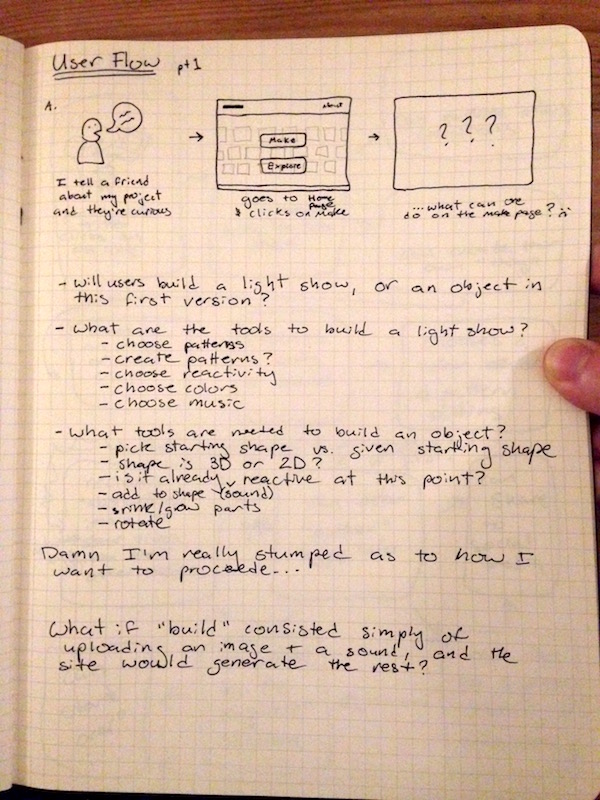 User Flow pt1
A.
About
Make
Explore
? ? ?
I tell a friend
about my project
and they're curious
goes to Home
Page
& clicks on Make
...what can one
do on the make page? :(
- will users build a light show, or an object in
this first version?
- what are the tools to build a light show?
- choose patterns
- create patterns?
- choose reactivity
- choose colors
- choose music
- what tools are needed to build an object?
- pick starting shape vs. given starting shape
- shape is 3D or 2D?
- is it already reactive at this point?
(sound)
- add to shape
- srink/grow parts
- rotate
Damn I'm really stumped as to how I
want to procede...
What if "build" consisted simply of
uploading an image + a sound, and the
site would generate the rest?